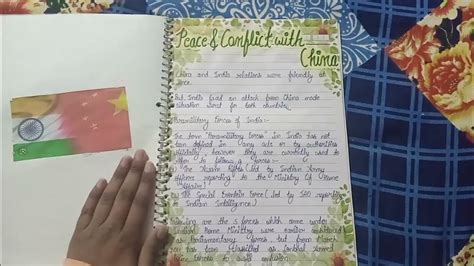 Peace & Conflict with
China
China and India relations were friendly at
once.
But India find an attack from China made
situation worst for both countries.
Paramilitary Forces of India:-
The term Paramilitary Forces in India has not
been defined in any acts or by authorities
officially, however they are currently used to
refer to following forces:-
The Assam Rifles (led by Indian Army
officers reporting to the Ministry of Home
Affairs)
The Special Frontier Force (led by
Indian Intelligence)
Following are the 5 forces which come under
Indian Home Ministry were earlier considered
as Paramilitary forces but from March